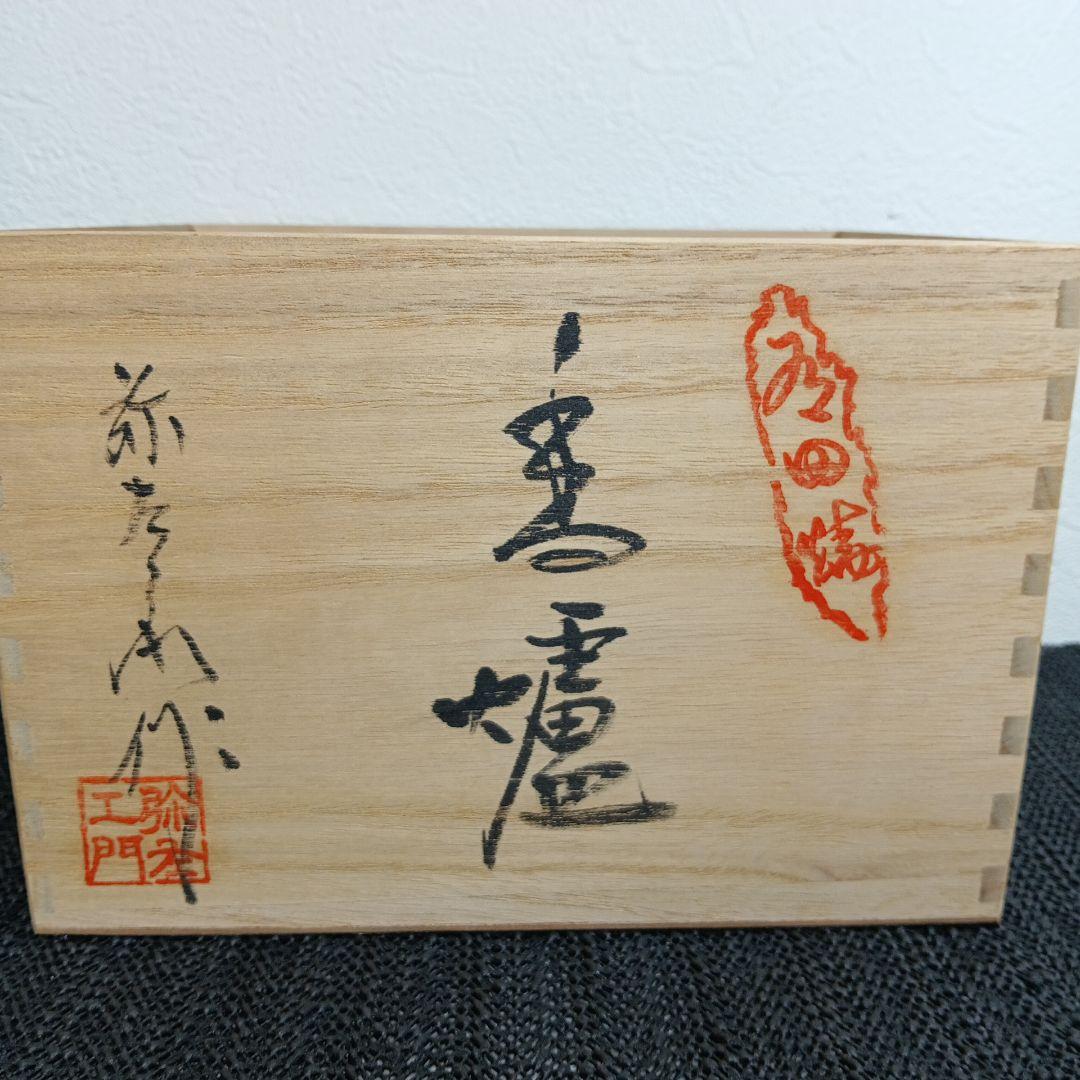 有田焼
香爐
弥左エ門作
弥左
エ門